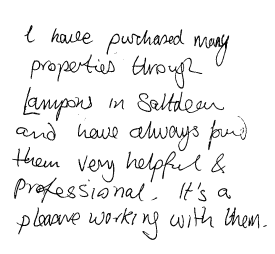 I have purchased many
properties through
Lampons in Saltdean
and have always found
them very helpful &
professional. It's a
pleasure working with them.